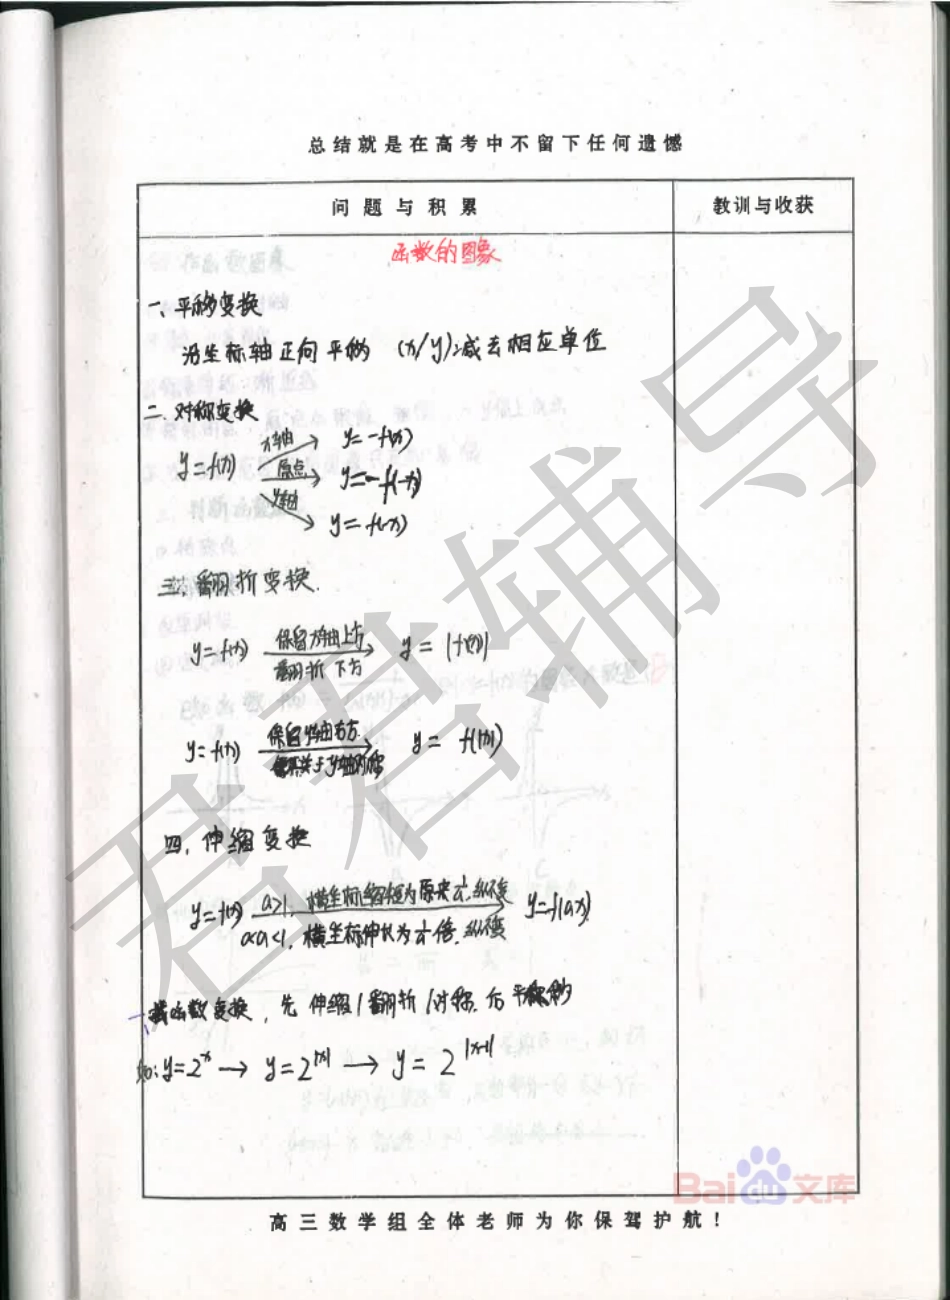 总结就是在高考中不留下任何遗憾
问题与积累 教训与收获
函数的图象
一、平移变换
沿坐标轴正向平移 (x/y)减去相应单位
二、对称变换
x轴 y=-f(x)
y=f(x) 原点 y=-f(-x)
y轴 y=f(-x)
三、翻折变换.
y=f(x) 保留x轴上方 翻折下方 y=|f(x)|
y=f(x) 保留y轴右方. 关于y轴对称 y=f(|x|)
四、伸缩变换
y=f(x) a>1, 横坐标缩短为原来1/a, 纵不变 y=f(ax)
0<a<1, 横坐标伸长为1/a倍, 纵不变
函数变换, 先伸缩/翻折/对称, 后平移
如: y=2^x → y=2^|x| → y=2^|x-1|
君君辅导
Bai du 文库
高三数学组全体老师为你保驾护航!